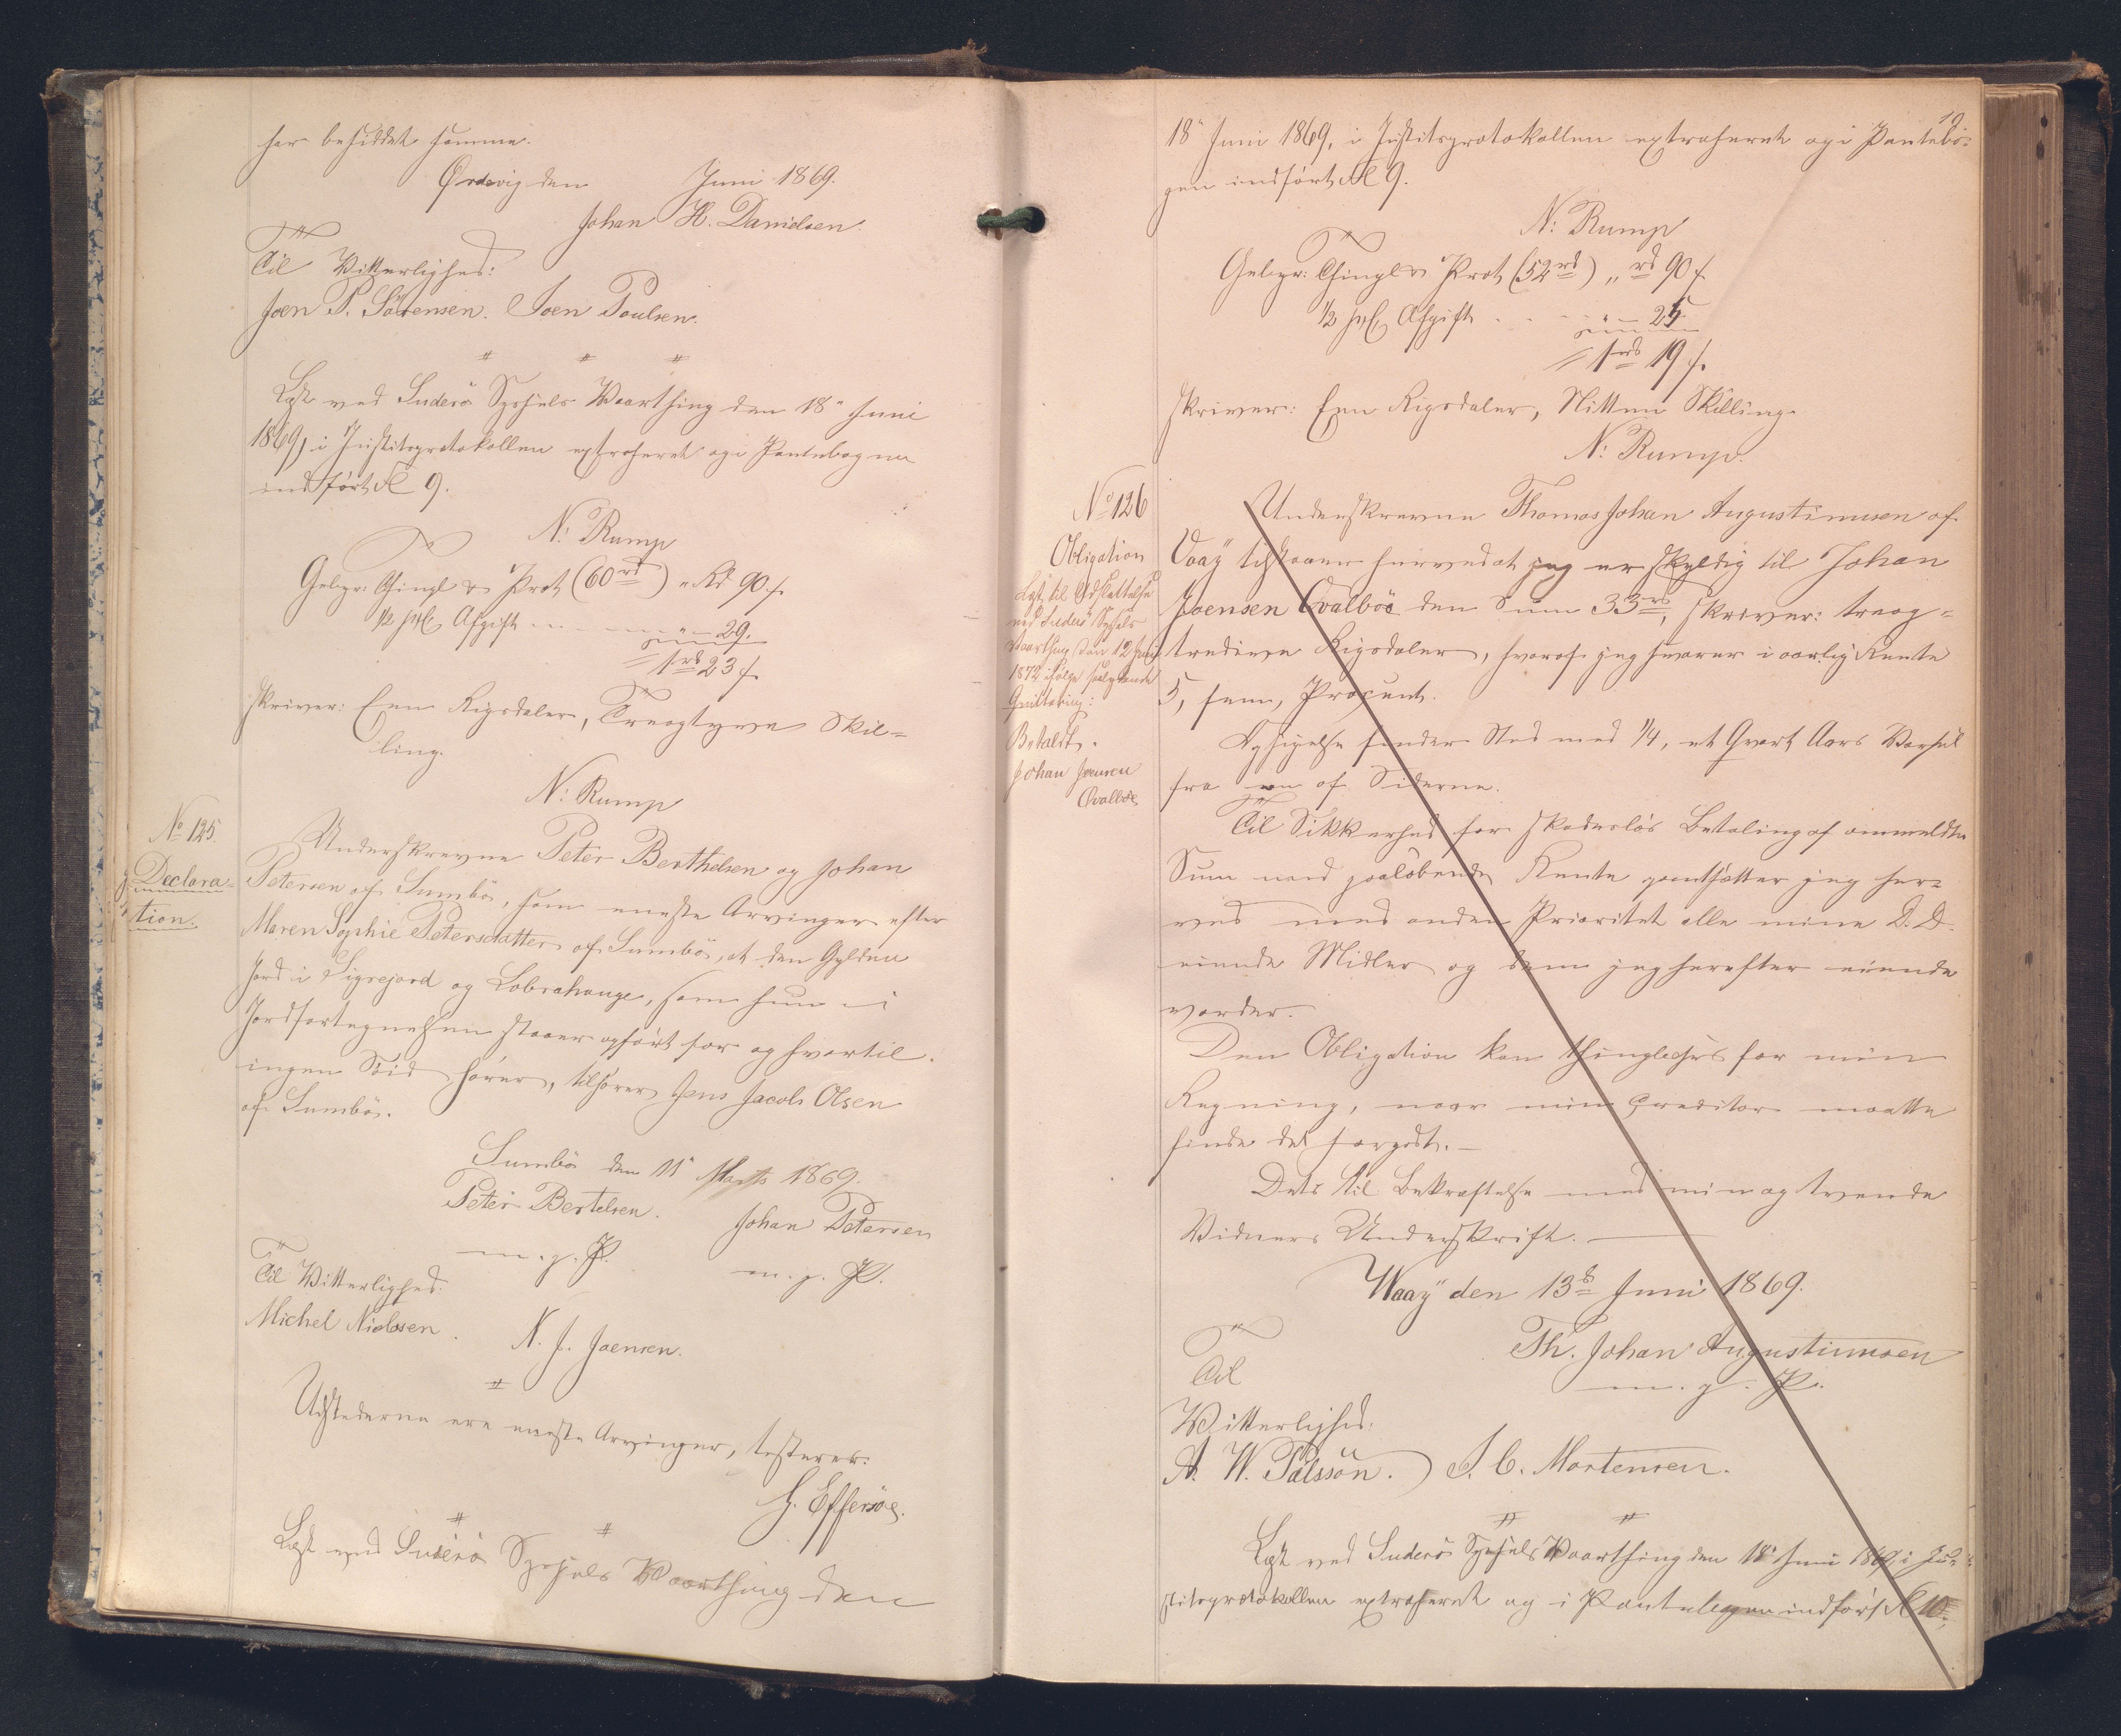 har besiddet samme.
Ørdevig den Juni 1869.
Johan H. Danielsen.
Til Vitterlighed:
Joen P. Sörensen. Joen Poulsen.
Læst ved Suderö Syssels Vaarthing den 18" Juni
1869, i Justitsprotokollen extraheret og i Pantebogen
indført Fol 9.
N: Rump
Gebyr: Thingl & Prot (60rd) " Rd 90 s.
1/2 pCt Afgift - - - " - 29.
= 1rd 23 s.
skriver: Een Rigsdaler, Treogtyve Skil=
ling.
N: Rump
No 125.
Declara=
tion.
Underskrevne Peter Berthelsen og Johan
Petersen af Sumbö, som eneste Arvinger efter
Maren Sophie Petersdatter af Sumbö, at den Gylden
Jord i Sigrejord og Lobrahauge, som hun i
Jordfortegnelsen staaer opført for og hvortil
ingen Söid hører, tilhører Jens Jacob Olsen
af Sumbö.
Sumbö den 11" Marts 1869.
Peter Bertelsen. Johan Petersen
m. g. P. m. g. P.
Til Vitterlighed.
Michel Nielssen. N. J. Joensen.
Udstederne ere eneste Arvinger, testerer:
G. Effersöe.
Læst ved Suderö Syssels Vaarthing den
19
18" Juni 1869, i Justitsprotokollen extraheret og i Pantebo=
gen indført Fol 9.
N: Rump
Gebyr: Thingl & Prot (52rd) " rd 90 s.
1/2 pCt Afgift - - - " - 25
= 1rd 19 s.
skriver: Een Rigsdaler, Nitten Skilling.
N: Rump.
No 126
Obligation
Læst til Udslettelse
ved Suderö Syssels
Vaarthing den 12 Juni
1872 ifølge følgende
Qvittering:
Betalt.
Johan Joensen
Qvalböe
Underskrevne Thomas Johan Augustinusen af
Vaaÿ tilstaaer herved at jeg er skyldig til Johan
Joensen Qvalböe den Sum 33rd, skriver: treog=
tredive Rigsdaler, hvoraf jeg svarer i aarlig Rente
5, fem, Procent.
Opsigelse finder Sted med 1/4, et Qvart Aars Varsel
fra en af Siderne.
Til Sikkerhed for skadesløs Betaling af ommeldte
Sum med paaløbende Rente pantsætter jeg her=
ved med anden Prioritet alle mine D. D.
eiende Midler og dem jeg herefter eiende
vorder.
Den Obligation kan thinglæses for min
Regning, naar min Creditor maatte
finde det forgodt. -
Dets til Bekræftelse med min og tvende
Vidners Underskrift.
Waaÿ den 13de Juni 1869.
Th. Johan Augustinusen
m. g. P.
Til
Vitterlighed:
A. W. Pálssón. J. C. Mortensen.
Læst ved Suderö Syssels Vaarthing den 18" Juni 1869, i Ju=
stitsprotokollen extraheret og i Pantebogen indført Fol 10.